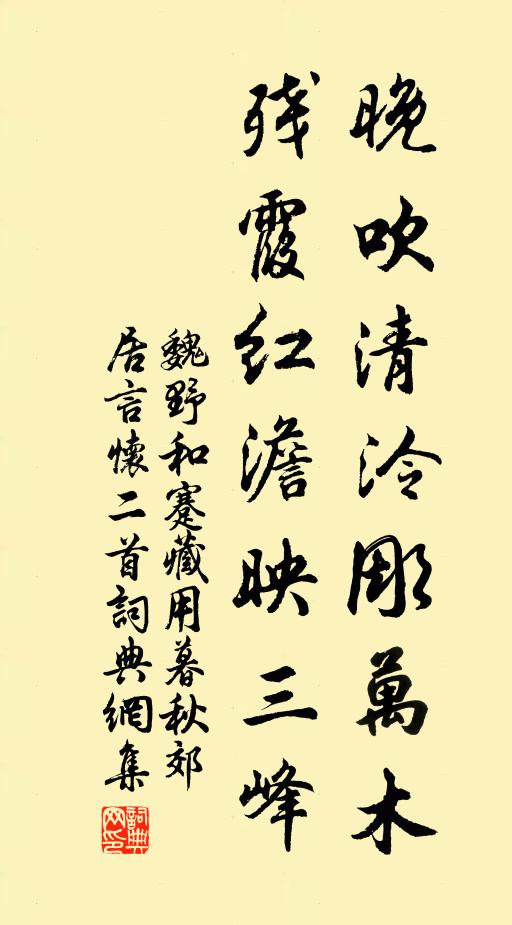 晚吹清泠彫萬木
残霞紅澹映三峰
魏野和蹇藏用暮秋郊
居言懷二首詞典網集
詞典网印